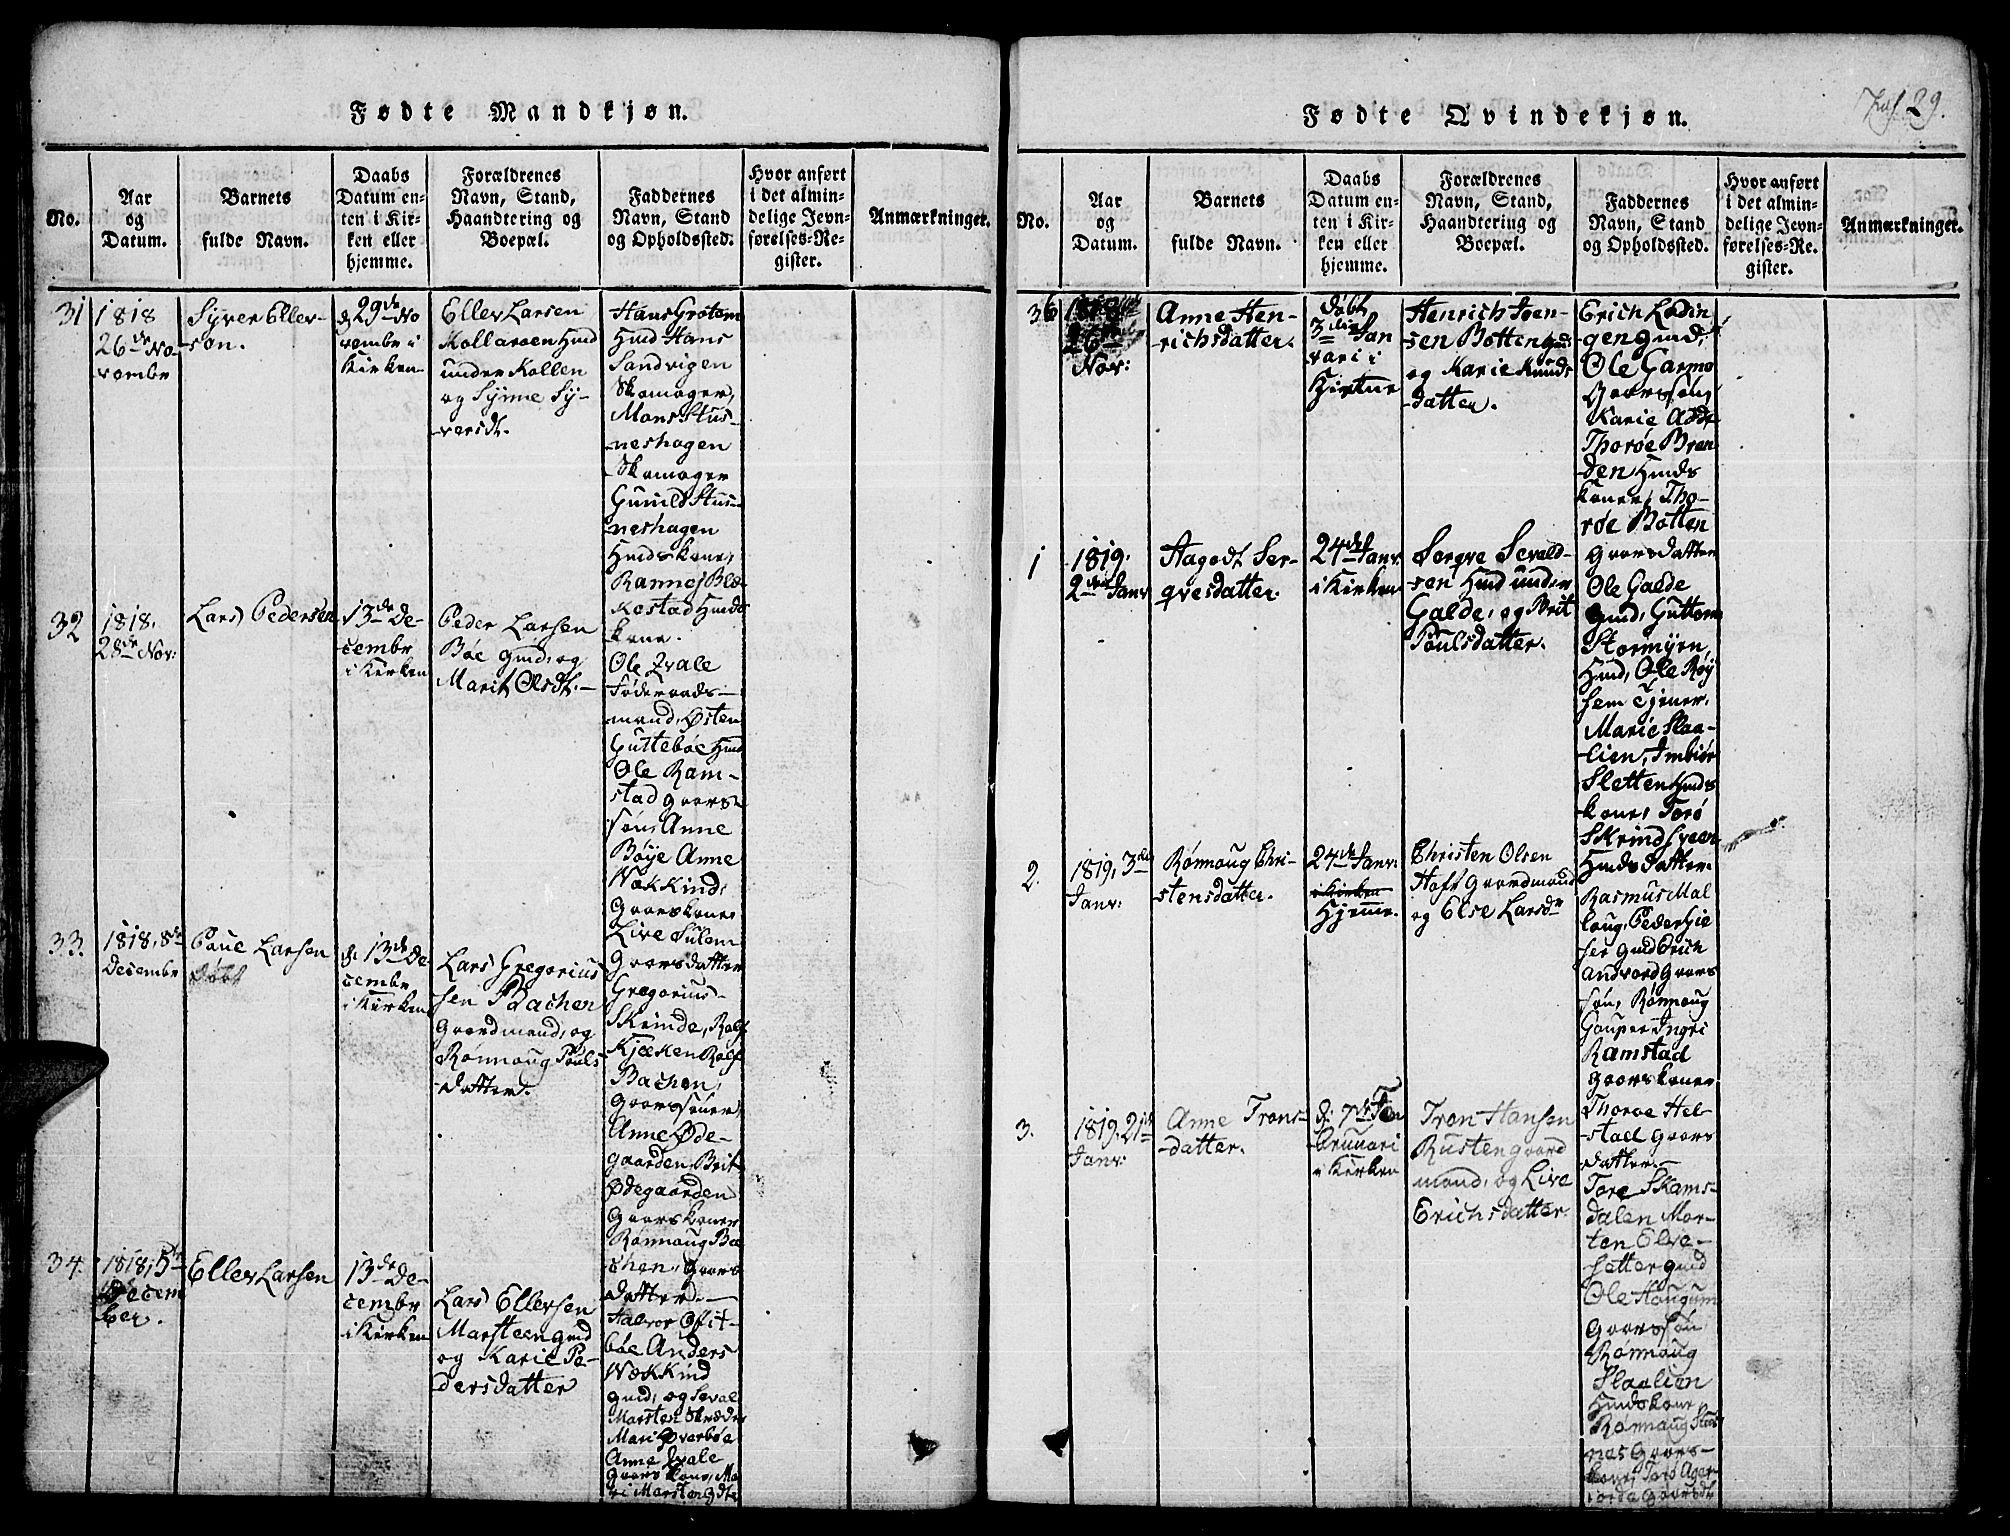 Fødte Mandkjøn.
No.
Aar
og
Datum.
Barnets
fulde Navn.
Daabs
Datum en-
ten i Kir-
ken eller
hjemme.
Forældrenes
Navn, Stand,
Haandtering og
Boepæl.
Faddernes
Navn, Stand
og Opholdssted.
Hvor anført
i det almin-
delige Jevn-
førelses-Re-
gister.
Anmærkninger.
31
1818
26de No-
vembr
Syver Eller-
søn.
d. 29de No
vembr i
Kirken
Eller Larsen
Kollaroen Hmd
under Kollen
og Synne Sy-
versdt.
Hans Grotem
Hmd Hans
Sandvigen
Skomager,
Mons Stus-
neshagen
Skomager
Gunild Stus-
neshagen
Hmdskone,
Rannej Blæ-
kastad Hmds
kone.
32
1818.
28de Nov:
Lars Pedersen
13de De-
cembr
i Kirken
Peder Larsen
Bøe gmd, og
Marit Olsdt.
Ole Zvale
Føderaads-
mand, Østen
Guttebøe Hmd
Ole Ram-
stad gaars-
søn, Anne
Bøye Anne
Wækkind,
Gaarskoner
Live Sulem
Gaarsdatter
33.
1818, 8de
Decembr
Poue Larsen
Døbt
d. 13de De-
cembr
i Kirken
Lars Gregorius
sen Bachen
Gaardmand, og
Rønnaug Pouls
datter.
Gregorius
Skrinde, Rolf
Kjæken Rolf
Bachen,
Gaarssøner,
Anne Øde-
gaarden, Brit
Ødegaarden
Gaarskoner
Rønnaug Ba
chen, Gaars
datter.
34.
1818, 5te
Decem
ber.
Eller Larsen
13de De-
cembr
i Kirken
Lars Ellersen
Marsteen gmd
og Karie Pe-
dersdatter
Halvor Ofit-
bøe Anders
Wækkind
gmd, og Seval
Marsten Skræder
Mari Øverbøe
Anne Zvale
Gaarskone, Ma
ri Marsten Gdtr
Fødte Qvindekjøn.
29.
No.
Aar
og
Datum.
Barnets
fulde Navn.
Daabs
Datum en-
ten i Kir-
ken eller
hjemme.
Forældrenes
Navn, Stand,
Haandtering og
Boepæl.
Faddernes
Navn, Stand
og Opholdssted.
Hvor anført
i det almin-
delige Jevn-
førelses-Re-
gister.
Anmærkninger.
36
1818
26de
Nov:
Anne Hen-
richsdatter.
Døbt
3die Jan
vari i
Henrich Joen-
sen Botten Hmd
og Karie Knuds
datter.
Erich Ladin-
gen gmd,
Ole Garmo
Gaarssøn,
Karie Odde
Thorøe Bran
den Hmds
koner, Tho-
røe Botten
gaarsdatter
1
1819.
2den Janv
Aagodt Ser-
qvesdatter.
24de Janv.
i Kirken
Serqve Sevald-
sen Hmd under
Galde, og Brit
Poulsdatter.
Ole Galde
Gmd, Guttorm
Stormyrn,
Hmd, Ole Røy
sem Tjener,
Marie Slaa-
lien, Imbiør
Sletten Hmds
kone, Torø
Skrindsveen
Hmds datter.
2.
1819, 3die
Janv:
Rønnaug Chri-
stensdatter.
24de Janv.
i Kirken
Hjemme.
Christen Olsen
Hoft Gaardmand
og Else Larsdr
Rasmus Mal
laug, Peder Gie
ser Gmd Erich
Andvord Gaars
søn, Rønnaug
Gouper Ingri
Ramstad
Gaarskoner
Thoroe Hel-
stad gaars
datter.
3.
1819. 21de
Janv:
Anne Trons-
datter.
d. 7de Fe
bruari
i Kirken
Tron Hansen
Rusten gaard
mand, og Live
Erichsdatter.
Tore Skams-
dalen Mor-
ten Elve-
setter gmd
Ole Hougum
Gaarssøn
Rønnaug
Slaalien
Hmdskone
Rønnaug Stus
nes Gaars-
kone, Torø Ager-
jorda gaarsdtr